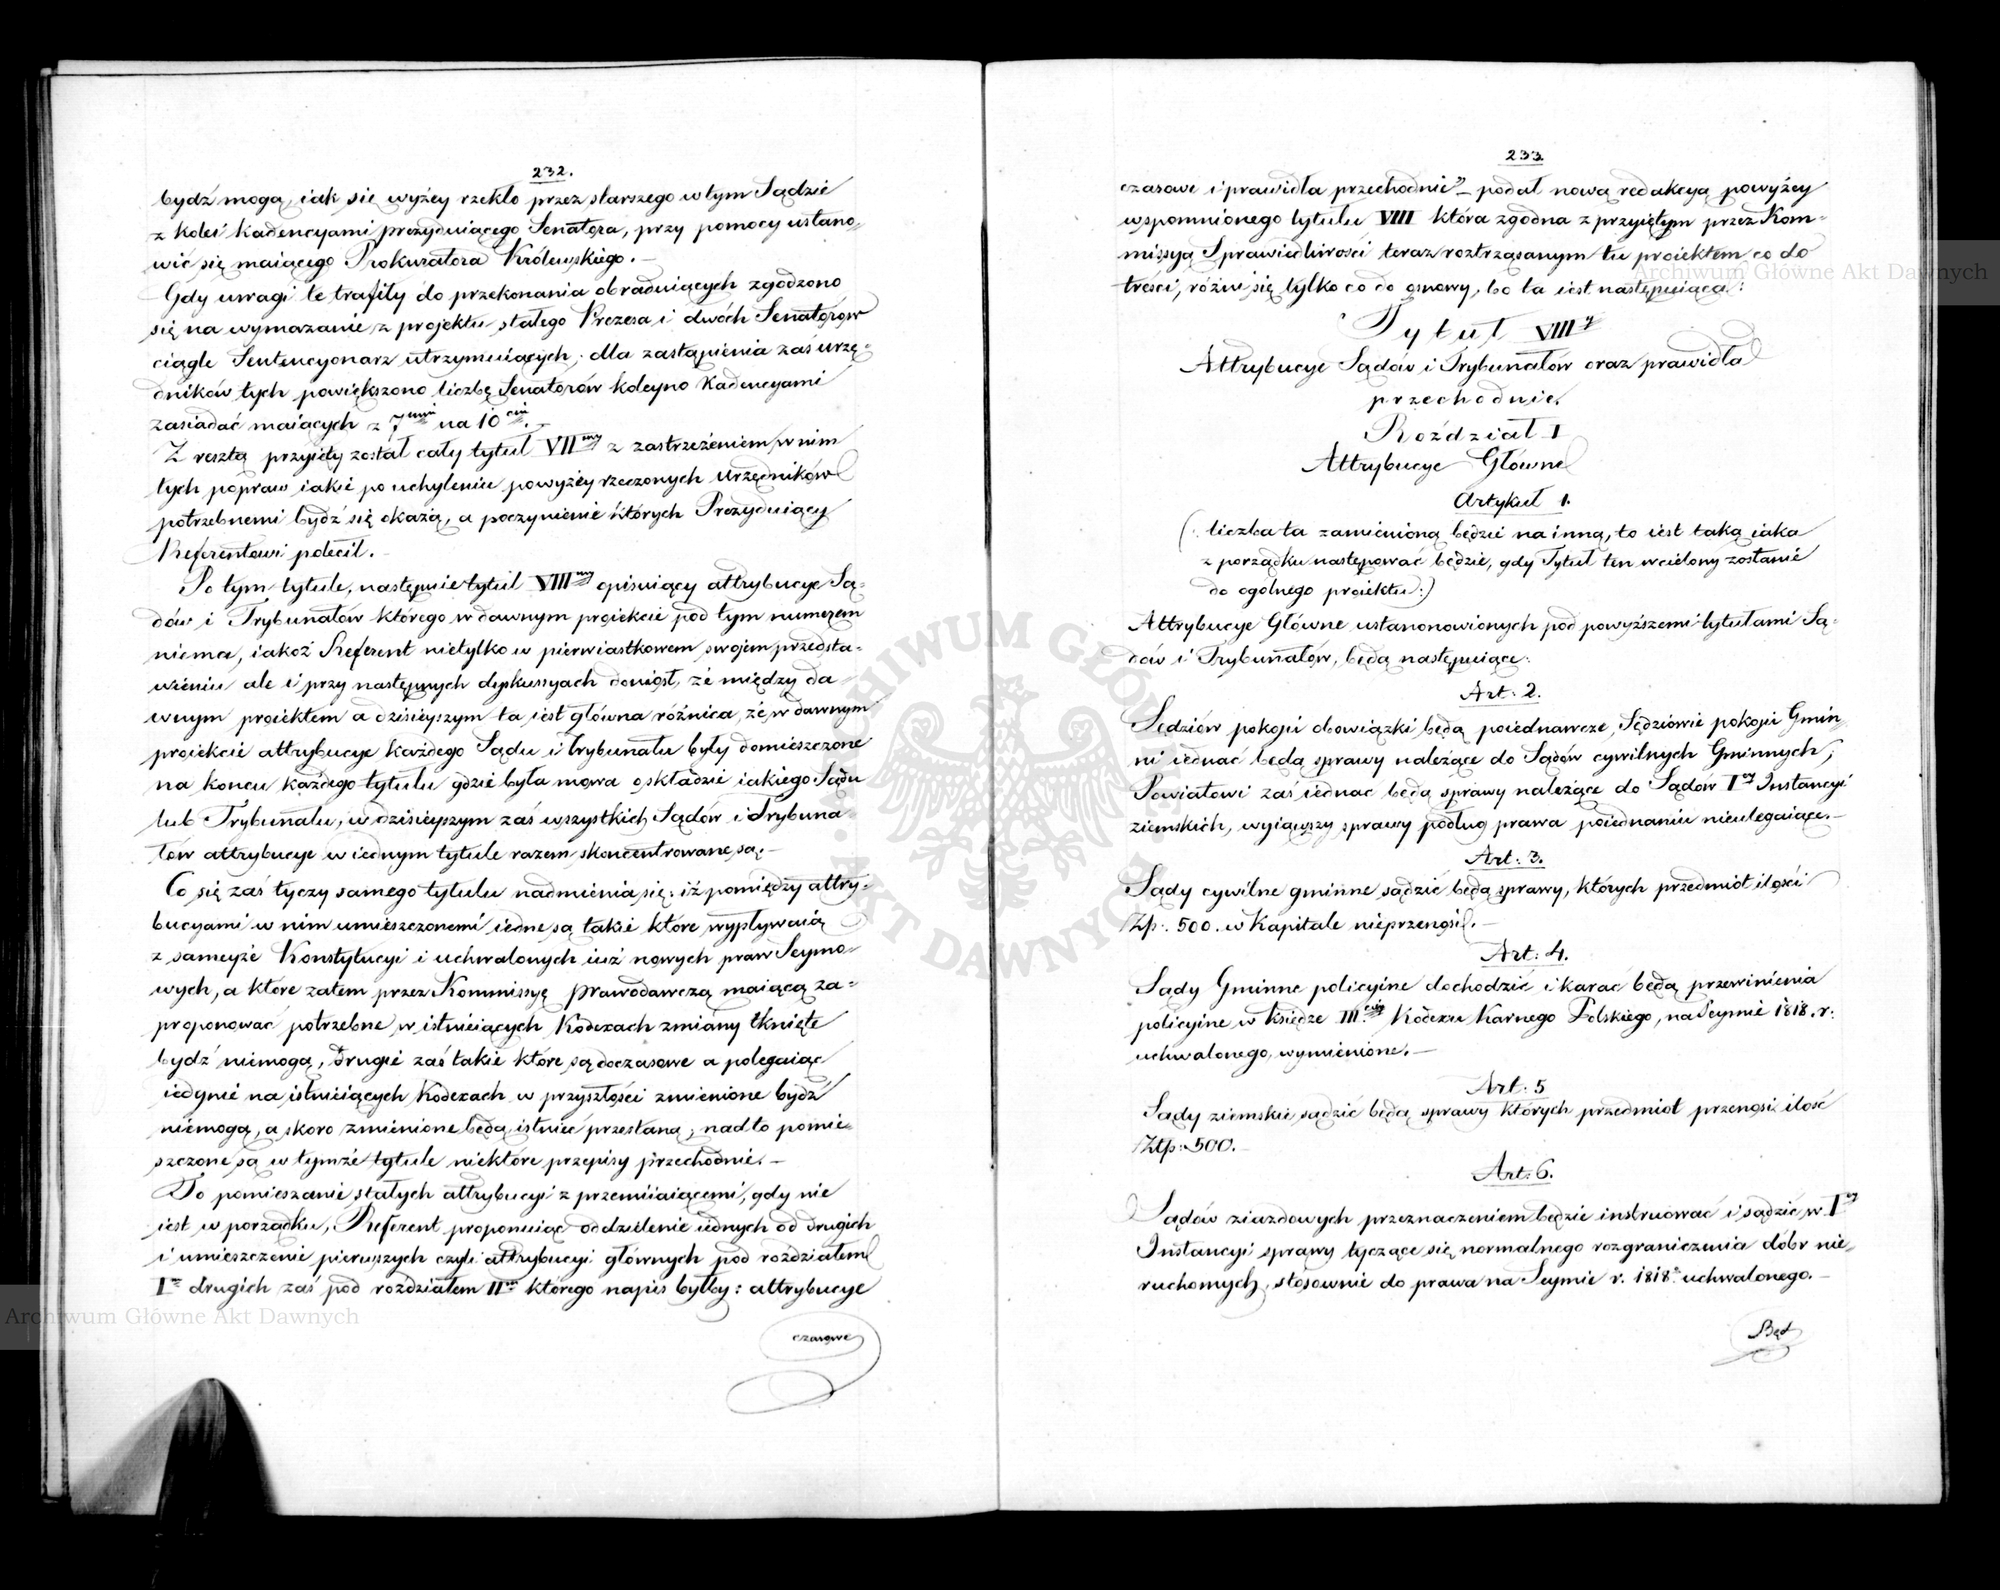 232.
bydź mogą, iak się wyżey rzekło przez starszego w tym Sądzie
z kolei kadencyami prezyduiącego Senatora, przy pomocy ustano-
wić się maiącego Prokuratora Królewskiego. —
Gdy uwagi te trafiły do przekonania obraduiących zgodzono
się na wymazanie z projektu stałego Prezesa i dwóch Senatorów
ciągle Sentencyonarz utrzymuiących; dla zastąpienia zaś urzę-
dników tych powiększono liczbę Senatorów koleyno Kadencyami
zasiadać maiących z 7miu na 10ciu. —
Z resztą przyięty został cały tytuł VIImy z zastrzeżeniem w nim
tych popraw iakie po uchyleniu powyżey rzeczonych urzędników
potrzebnemi bydź się okażą, a poczynienie których Prezyduiący
Referentowi polecił. —
Po tym tytule, następuie tytuł VIIImy opisuiący attrybucye Są-
dów i Trybunałów którego w dawnym proiekcie pod tym numerem
niema, iakoż Referent nietylko w pierwiastkowem swojem przedsta-
wieniu ale i przy następnych dyskussyach doniósł, że między da-
wnym proiektem a dzisieyszym ta iest główna różnica, że w dawnym
proiekcie attrybucye każdego Sądu i Trybunału były domieszczone
na końcu każdego tytułu gdzie była mowa o składzie iakiego Sądu
lub Trybunału, w dzisieyszym zaś wszystkich Sądów i Trybuna-
łów attrybucye w iednym tytule razem skoncentrowane są. —
Co się zaś tyczy samego tytułu nadmienia się: iż pomiędzy attry-
bucyami w nim umieszczonemi iedne są takie które wypływaią
z sameyże Konstytucyi i uchwalonych iuż nowych praw Seymo-
wych, a które zatem przez Kommissyę prawodawczą maiącą za-
proponować potrzebne w istnieiących Kodexach zmiany tknięte
bydź niemogą, drugie zaś takie które są doczasowe a polegaiąc
iedynie na istnieiących Kodexach w przyszłości zmienione bydź
niemogą, a skoro zmienione będą istnieć przestaną; nadto pomie-
szczone są w tymże tytule niektóre przepisy przechodnie. —
To pomieszanie stałych attrybucyi z przemiiaiącemi, gdy nie
iest w porządku, Referent proponuiąc oddzielenie iednych od drugich
i umieszczenie pierwszych czyli attrybucyi głównych pod rozdziałem
Im drugich zaś pod rozdziałem IIm którego napis byłby: attrybucye
czasowe
233
czasowe i prawidła przechodnie" — podał nową redakcyą powyżey
wspomnionego tytułu VIII która zgodna z przyiętym przez Kom-
missyą Sprawiedliwości teraz roztrząsanym tu proiektem co do
treści, różni się tylko co do osnowy, bo ta iest następuiąca:
Tytuł VIIIy
Attrybucye Sądów i Trybunałów oraz prawidła
przechodnie.
Rozdział I
Attrybucye Główne
Artykuł 1.
(: liczba ta zamienioną będzie na inną, to iest taką iaka
z porządku następować będzie, gdy Tytuł ten wcielony zostanie
do ogólnego proiektu :)
Attrybucye Główne ustanonowionych pod powyższemi tytułami Są-
dów i Trybunałów, będą następuiące:
Art: 2.
Sędziów pokoju obowiązki będą poiednawcze, Sędziowie pokoju Gmin-
ni iednać będą sprawy należące do Sądów cywilnych Gminnych;
Powiatowi zaś iednać będą sprawy należące do Sądów Iey Instancyi
ziemskich, wyiąwszy sprawy podług prawa poiednaniu nieulegaiące. —
Art: 3.
Sądy cywilne gminne sądzić będą sprawy, których przedmiot ilości
Złp: 500. w Kapitale nieprzenosi. —
Art: 4.
Sądy Gminne policyine dochodzić i karać będą przewinienia
policyine w księdze IIIciej Kodexu Karnego Polskiego, na Seymie 1818. r:
uchwalonego, wymienione. —
Art: 5
Sądy ziemskie sądzić będą sprawy których przedmiot przenosi ilość
Złtp: 500. —
Art: 6.
Sądów ziazdowych przeznaczeniem będzie instruować i sądzić w Iey
Instancyi sprawy tyczące się normalnego rozgraniczenia dóbr nie-
ruchomych, stosownie do prawa na Seymie r. 1818o uchwalonego. —
Będ
Archiwum Główne Akt Dawnych
Archiwum Główne Akt Dawnych
ARCHIWUM GŁÓWNE · AKT DAWNYCH ·